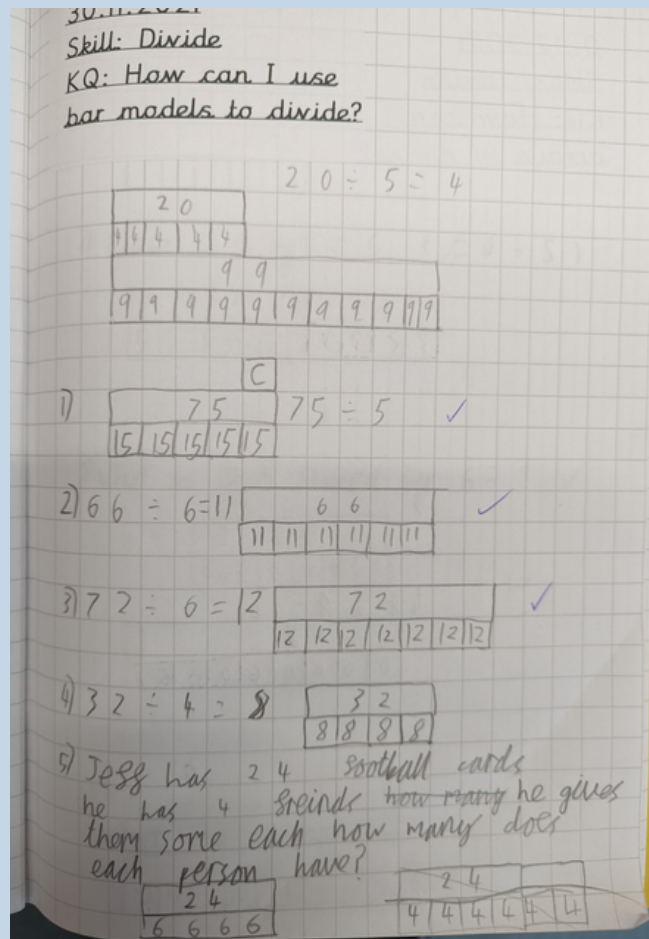 30.11.2021
Skill: Divide
KQ: How can I use
bar models to divide?
20 ÷ 5 = 4
20
4 4 4 4 4
99
9 9 9 9 9 9 9 9 9 9 9
C
1) 75 75 ÷ 5 ✓
15 15 15 15 15
2) 66 ÷ 6 = 11 66 ✓
11 11 11 11 11 11
3) 72 ÷ 6 = 12 72 ✓
12 12 12 12 12 12 12
4) 32 ÷ 4 = 8 32
8 8 8 8
5) Jeff has 24 football cards
he has 4 freinds how many he gives
them some each how many does
each person have?
24 24
6 6 6 6 4 4 4 4 4 4